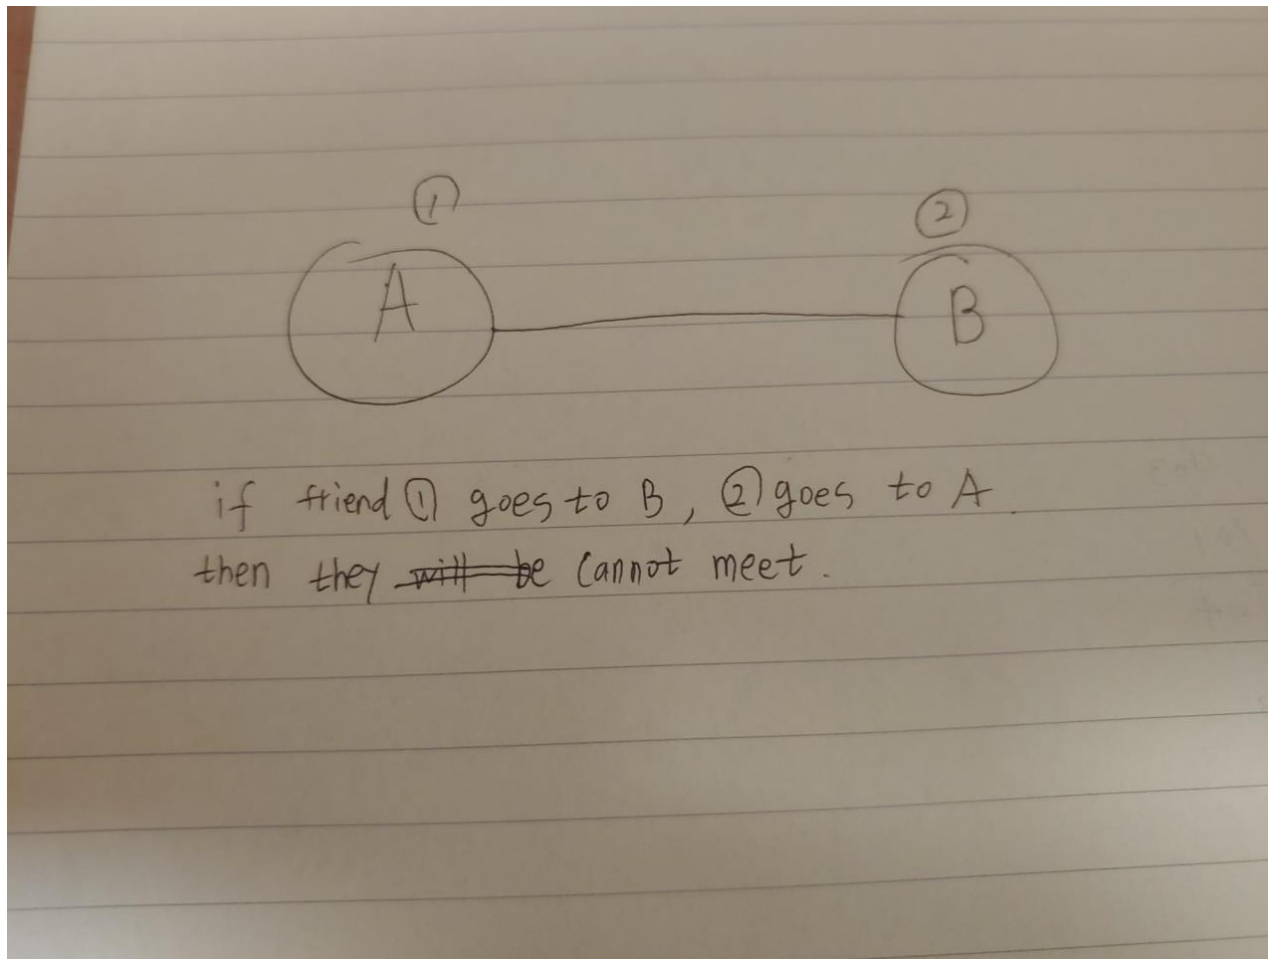 ① ②
A B
if friend ① goes to B, ② goes to A
then they will be cannot meet.